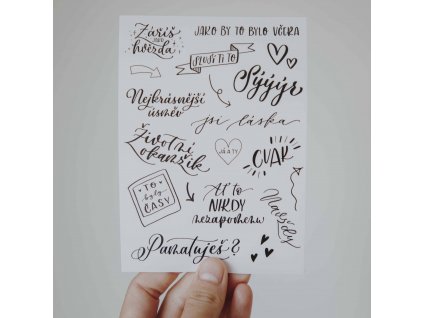 Záříš
jako
hvězda
JAKO BY TO BYLO VČERA
SLUŠÍ TI TO
Sýýýr
Nejkrásnější
úsměv
jsi láska
Životní
okamžik
JÁ A TY
CVAK
TO
byly
ČASY
Ať to
NIKDY
nezapomenu
Navždy
Pamatuješ?